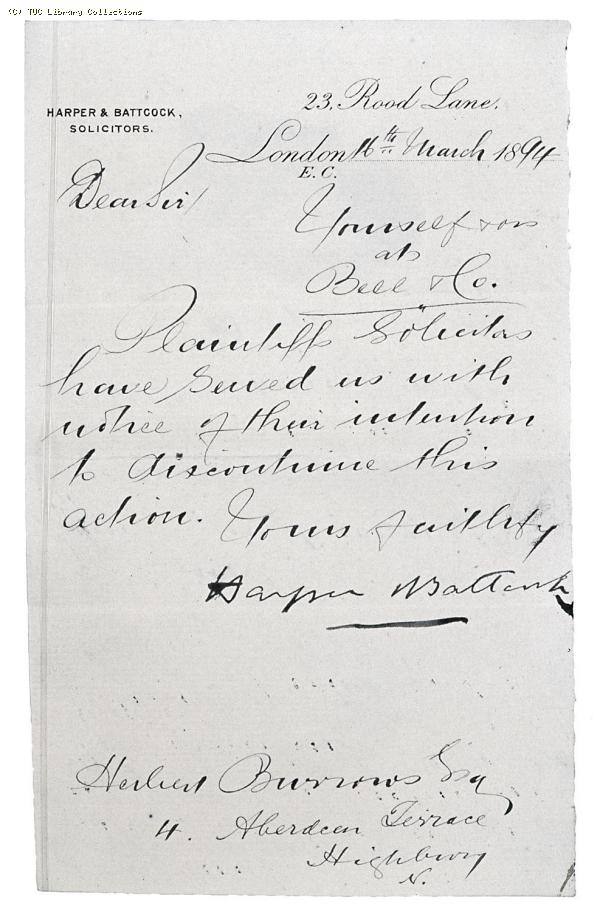 (C) TUC Library Collections
23, Rood Lane.
HARPER & BATTCOCK,
SOLICITORS.
London 16th March 1894
E.C.
Dear Sir
Yourself & ors
ats
Bell & Co.
Plaintiffs Solicitors
have served us with
notice of their intention
to discontinue this
action.
Yours faithfully
Harper & Battcock
Herbert Burrows Esq
4. Aberdeen Terrace
Highbury
N.